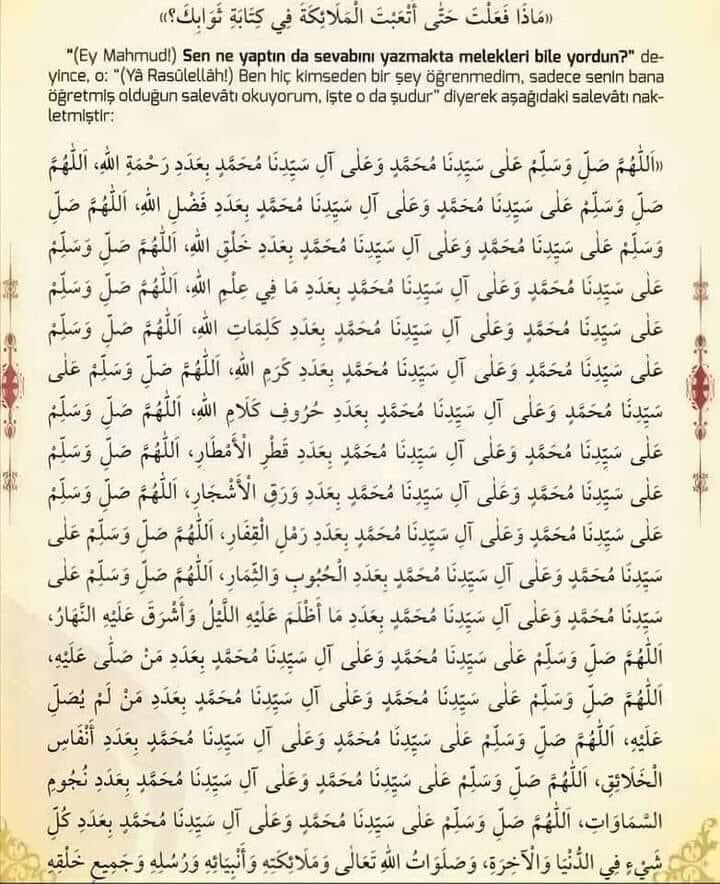 «مَاذَا فَعَلْتَ حَتّٰى أَتْعَبْتَ الْمَلَائِكَةَ فِي كِتَابَةِ ثَوَابِكَ؟»
"(Ey Mahmud!) Sen ne yaptın da sevabını yazmakta melekleri bile yordun?" de-
yince, o: "(Yâ Rasûlellâh!) Ben hiç kimseden bir şey öğrenmedim, sadece senin bana
öğretmiş olduğun salevâtı okuyorum, işte o da şudur" diyerek aşağıdaki salevâtı nak-
letmiştir:
«اَللّٰهُمَّ صَلِّ وَسَلِّمْ عَلٰى سَيِّدِنَا مُحَمَّدٍ وَعَلٰى آلِ سَيِّدِنَا مُحَمَّدٍ بِعَدَدِ رَحْمَةِ اللهِ، اَللّٰهُمَّ
صَلِّ وَسَلِّمْ عَلٰى سَيِّدِنَا مُحَمَّدٍ وَعَلٰى آلِ سَيِّدِنَا مُحَمَّدٍ بِعَدَدِ فَضْلِ اللهِ، اَللّٰهُمَّ صَلِّ
وَسَلِّمْ عَلٰى سَيِّدِنَا مُحَمَّدٍ وَعَلٰى آلِ سَيِّدِنَا مُحَمَّدٍ بِعَدَدِ خَلْقِ اللهِ، اَللّٰهُمَّ صَلِّ وَسَلِّمْ
عَلٰى سَيِّدِنَا مُحَمَّدٍ وَعَلٰى آلِ سَيِّدِنَا مُحَمَّدٍ بِعَدَدِ مَا فِي عِلْمِ اللهِ، اَللّٰهُمَّ صَلِّ وَسَلِّمْ
عَلٰى سَيِّدِنَا مُحَمَّدٍ وَعَلٰى آلِ سَيِّدِنَا مُحَمَّدٍ بِعَدَدِ كَلِمَاتِ اللهِ، اَللّٰهُمَّ صَلِّ وَسَلِّمْ
عَلٰى سَيِّدِنَا مُحَمَّدٍ وَعَلٰى آلِ سَيِّدِنَا مُحَمَّدٍ بِعَدَدِ كَرَمِ اللهِ، اَللّٰهُمَّ صَلِّ وَسَلِّمْ عَلٰى
سَيِّدِنَا مُحَمَّدٍ وَعَلٰى آلِ سَيِّدِنَا مُحَمَّدٍ بِعَدَدِ حُرُوفِ كَلَامِ اللهِ، اَللّٰهُمَّ صَلِّ وَسَلِّمْ
عَلٰى سَيِّدِنَا مُحَمَّدٍ وَعَلٰى آلِ سَيِّدِنَا مُحَمَّدٍ بِعَدَدِ قَطْرِ الْأَمْطَارِ، اَللّٰهُمَّ صَلِّ وَسَلِّمْ
عَلٰى سَيِّدِنَا مُحَمَّدٍ وَعَلٰى آلِ سَيِّدِنَا مُحَمَّدٍ بِعَدَدِ وَرَقِ الْأَشْجَارِ، اَللّٰهُمَّ صَلِّ وَسَلِّمْ
عَلٰى سَيِّدِنَا مُحَمَّدٍ وَعَلٰى آلِ سَيِّدِنَا مُحَمَّدٍ بِعَدَدِ رَمْلِ الْقِفَارِ، اَللّٰهُمَّ صَلِّ وَسَلِّمْ عَلٰى
سَيِّدِنَا مُحَمَّدٍ وَعَلٰى آلِ سَيِّدِنَا مُحَمَّدٍ بِعَدَدِ الْحُبُوبِ وَالثِّمَارِ، اَللّٰهُمَّ صَلِّ وَسَلِّمْ عَلٰى
سَيِّدِنَا مُحَمَّدٍ وَعَلٰى آلِ سَيِّدِنَا مُحَمَّدٍ بِعَدَدِ مَا أَظْلَمَ عَلَيْهِ اللَّيْلُ وَأَشْرَقَ عَلَيْهِ النَّهَارُ،
اَللّٰهُمَّ صَلِّ وَسَلِّمْ عَلٰى سَيِّدِنَا مُحَمَّدٍ وَعَلٰى آلِ سَيِّدِنَا مُحَمَّدٍ بِعَدَدِ مَنْ صَلّٰى عَلَيْهِ،
اَللّٰهُمَّ صَلِّ وَسَلِّمْ عَلٰى سَيِّدِنَا مُحَمَّدٍ وَعَلٰى آلِ سَيِّدِنَا مُحَمَّدٍ بِعَدَدِ مَنْ لَمْ يُصَلِّ
عَلَيْهِ، اَللّٰهُمَّ صَلِّ وَسَلِّمْ عَلٰى سَيِّدِنَا مُحَمَّدٍ وَعَلٰى آلِ سَيِّدِنَا مُحَمَّدٍ بِعَدَدِ أَنْفَاسِ
الْخَلَائِقِ، اَللّٰهُمَّ صَلِّ وَسَلِّمْ عَلٰى سَيِّدِنَا مُحَمَّدٍ وَعَلٰى آلِ سَيِّدِنَا مُحَمَّدٍ بِعَدَدِ نُجُومِ
السَّمَاوَاتِ، اَللّٰهُمَّ صَلِّ وَسَلِّمْ عَلٰى سَيِّدِنَا مُحَمَّدٍ وَعَلٰى آلِ سَيِّدِنَا مُحَمَّدٍ بِعَدَدِ كُلِّ
شَيْءٍ فِي الدُّنْيَا وَالْآخِرَةِ، وَصَلَوَاتُ اللهِ تَعَالٰى وَمَلَائِكَتِهِ وَأَنْبِيَائِهِ وَرُسُلِهِ وَجَمِيعِ خَلْقِهِ